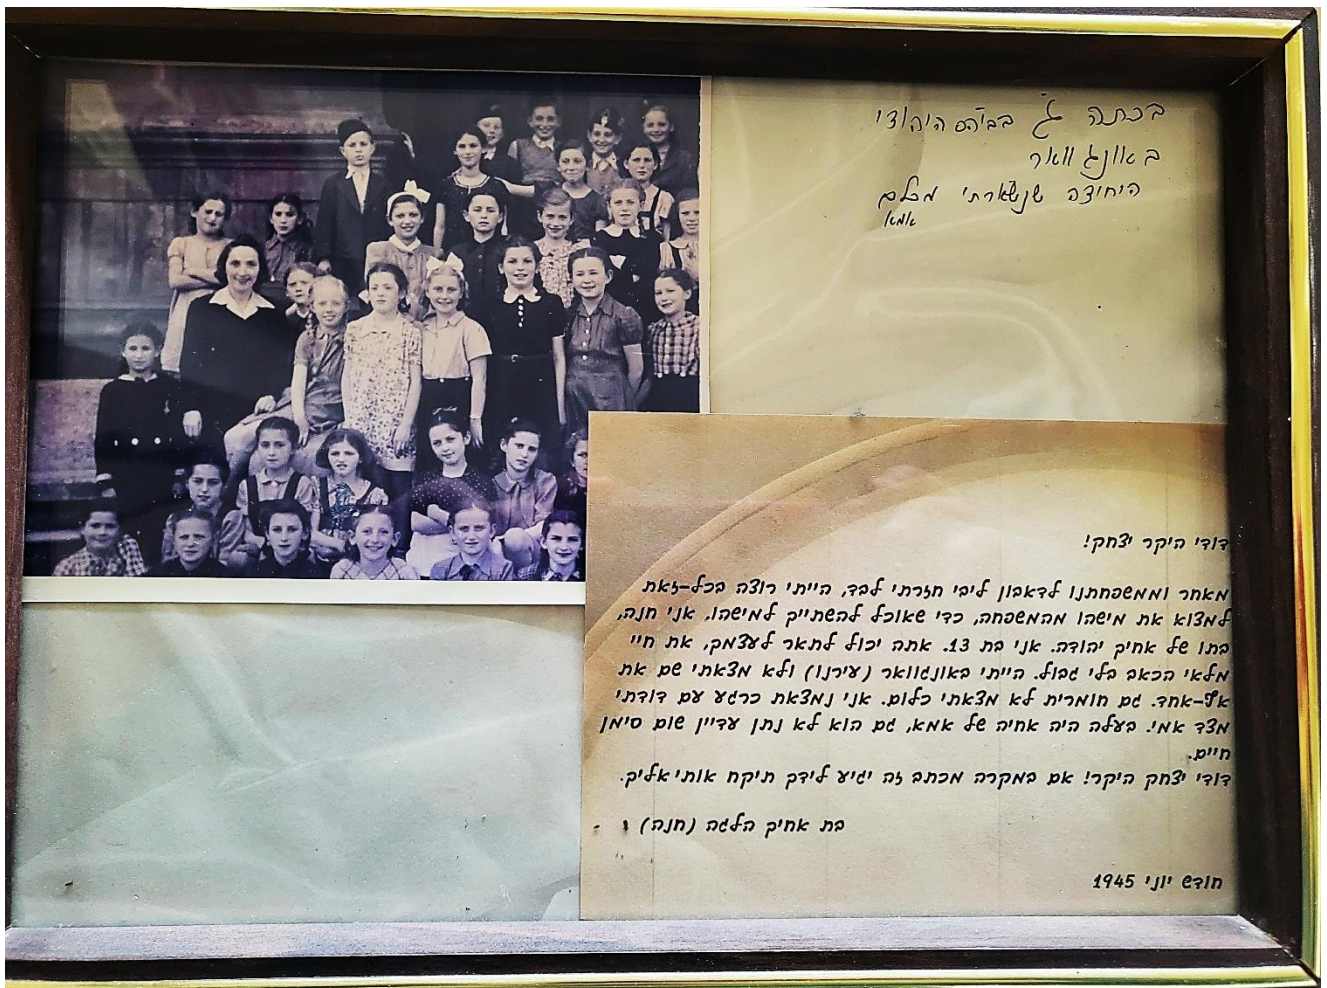 בכתה ג' בביה"ס היהודי
באונגוואר
היחידה שנשארתי מכלם
אמא
דודי היקר יצחק!
מאחר וממשפחתנו לדאבון ליבי חזרתי לבד, הייתי רוצה בכל-זאת
למצוא את מישהו מהמשפחה, כדי שאוכל להשתייק למישהו. אני חנה,
בתו של אחיק יהודה. אני בת 13. אתה יכול לתאר לעצמך, את חיי
מלאי הכאב בלי גבול. הייתי באונגוואר (עירנו) ולא מצאתי שם את
אף-אחד. גם חומרית לא מצאתי כלום. אני נמצאת כרגע עם דודתי
מצד אמי. בעלה היה אחיה של אמא, גם הוא לא נתן עדיין שום סימן
חיים.
דודי יצחק היקר! אם במקרה מכתב זה יגיע לידך תיקח אותי אליך.
בת אחיק הלגה (חנה)
חודש יוני 1945